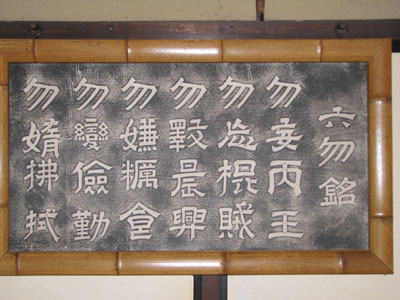 六勿銘
勿妄丙王
勿忘棍賊
勿斁晨興
勿嫌糲食
勿變儉勤
勿媠拂拭